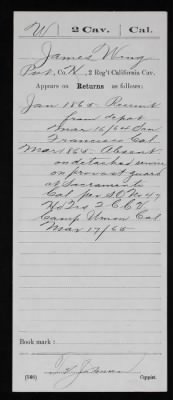 W 2 Cav. Cal.
James Wing
Pvt., Co. H, 2 Reg't California Cav.
Appears on Returns as follows:
Jan 1865 Recruit
from depot
Mar 16/64 San
Francisco Cal
Mar 1865 Absent
on detached service
on provost guard
at Sacramento
Cal per S.O. No 47
Hd Qrs 2 C C V
Camp Union Cal
Mar 17/65
Book mark:
(546)
Copyist.